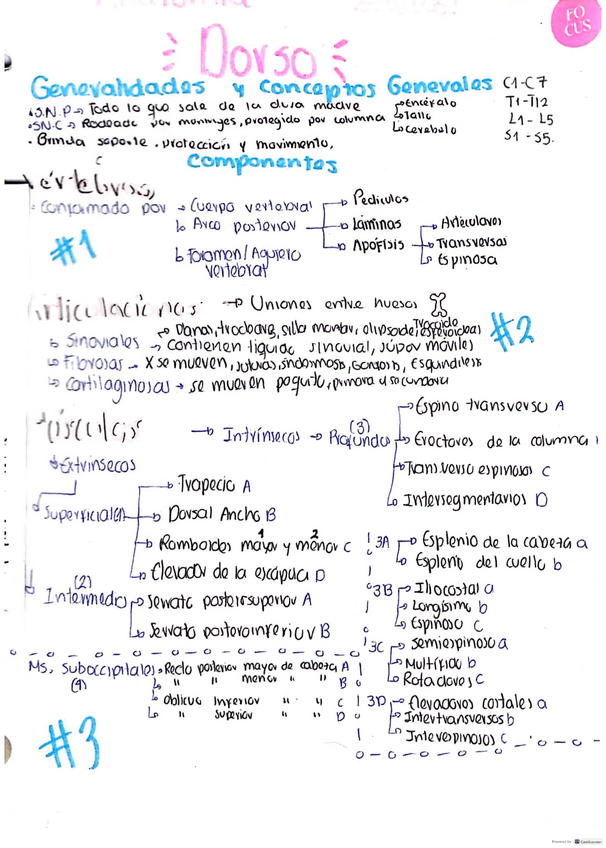 FO
CUS
Dorso
Generalidades y Conceptos Generales
C1-C7
T1-T12
L1-L5
S1-S5.
S.N.P → Todo lo que sale de la dura madre
SN.C → Rodeado por meninges, protegido por columna
Encéfalo
Tallo
Cerebelo
Brinda soporte, protección y movimiento,
Componentes
Conformado por → Cuerpo vertebral
Arco posterior
Foramen/Agujero
vertebral
Pedículos
Láminas
Apófisis
Articulares
Transversas
Espinosa
#1
Articulaciones → Uniones entre huesos
#2
Sinoviales → Planas, trocleares, silla montar, elipsoide, Trocoide
→ Contienen líquido sinovial, súper móviles
Fibrosas → X se mueven, suturas,
Cartilaginosas → se mueven poquito, primaria
Músculos → Intrínsecos → (3) Profundo
Espino transverso A
Erectores de la columna
Transverso espinosos C
Intersegmentarios D
Extrinsecos
Superficial (1)
Trapecio A
Dorsal Ancho B
Romboides mayor 1 y menor 2 C
Elevador de la escápula D
(2)
Intermedio
Serrato posterosuperior A
Serrato posteroinferior B
3A Esplenio de la cabeza a
Esplenio del cuello b
3B Iliocostal a
Longísimo b
Espinoso C
3C Semiespinoso a
Multífido b
Rotadores C
3D Elevadores costales a
Intertransversos b
Interespinosos C
Ms. Suboccipitales → Recto posterior mayor de cabeza A
(4) " " menor " " B
oblicuo Inferior " " C
" superior " " D
#3
Powered by CamScanner